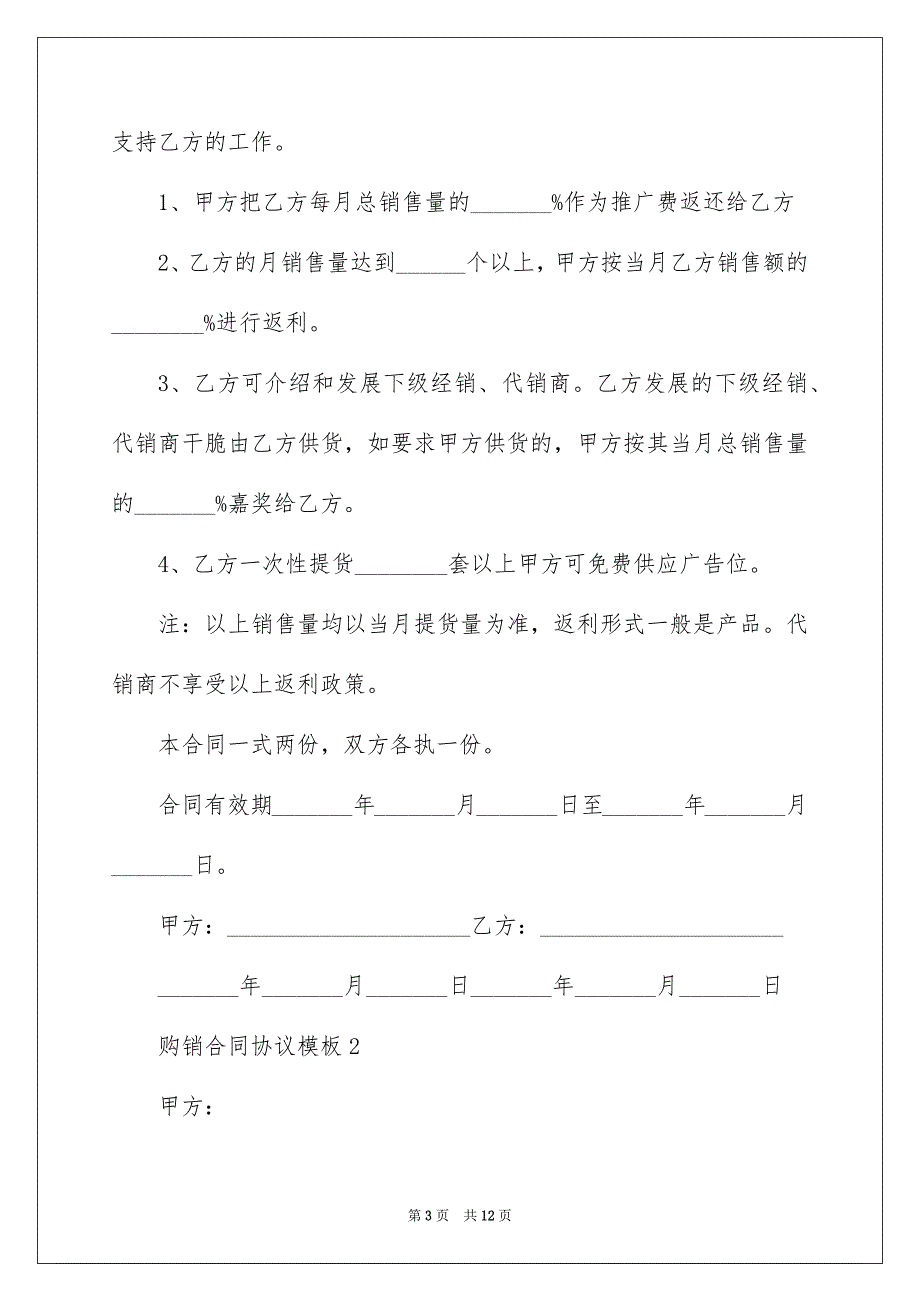 支持乙方的工作。
1、甲方把乙方每月总销售量的_______%作为推广费返还给乙方
2、乙方的月销售量达到______个以上，甲方按当月乙方销售额的
________%进行返利。
3、乙方可介绍和发展下级经销、代销商。乙方发展的下级经销、
代销商干脆由乙方供货，如要求甲方供货的，甲方按其当月总销售量
的_______%嘉奖给乙方。
4、乙方一次性提货________套以上甲方可免费供应广告位。
注：以上销售量均以当月提货量为准，返利形式一般是产品。代
销商不享受以上返利政策。
本合同一式两份，双方各执一份。
合同有效期_______年_______月_______日至_______年_______月
_______日。
甲方：_____________________乙方：_____________________
_______年_______月_______日_______年_______月_______日
购销合同协议模板 2
甲方：
第 3 页 共 12 页